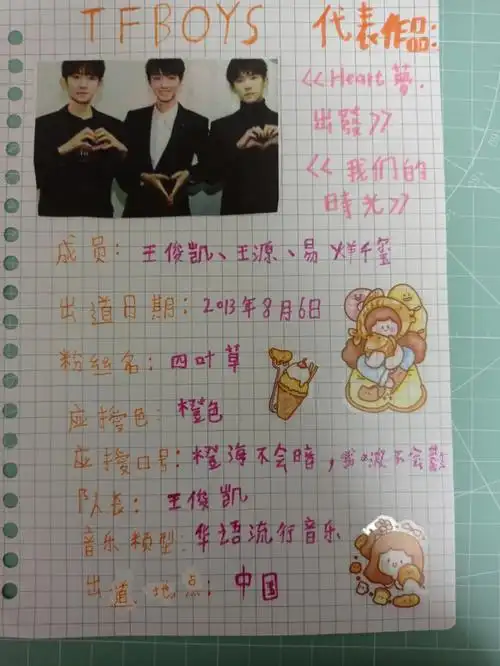 TFBOYS
代表作品:
<<Heart 夢.
出發>>
<<我们的
時光>>
成员: 王俊凯、王源、易烊千玺
出道日期: 2013年8月6日
粉丝名: 四叶草
应援色: 橙色
应援口号: 橙海不会暗,
队长: 王俊凯
音乐类型: 华语流行音乐
出道地点: 中国